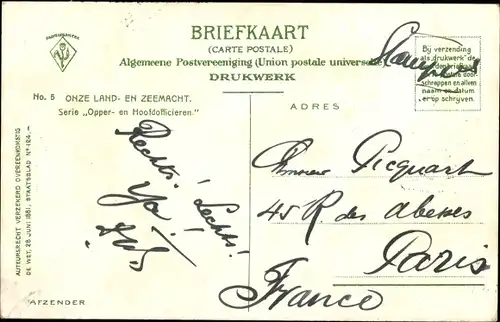 BRIEFKAART
(CARTE POSTALE)
Algemeene Postvereeniging (Union postale universelle)
DRUKWERK
Bij verzending
als drukwerk de
schrappen en alleen
naam en datum
er op schrijven.
No. 5 ONZE LAND- EN ZEEMACHT.
Serie „Opper- en Hoofdofficieren."
ADRES
Rechts! Lechts!
Ya!
Picquart
45 R. des abesses
Paris
France
AUTEURSRECHT VERZEKERD OVEREENKOMSTIG
DE WET, 28 JUNI 1881, STAATSBLAD No 124.—
AFZENDER